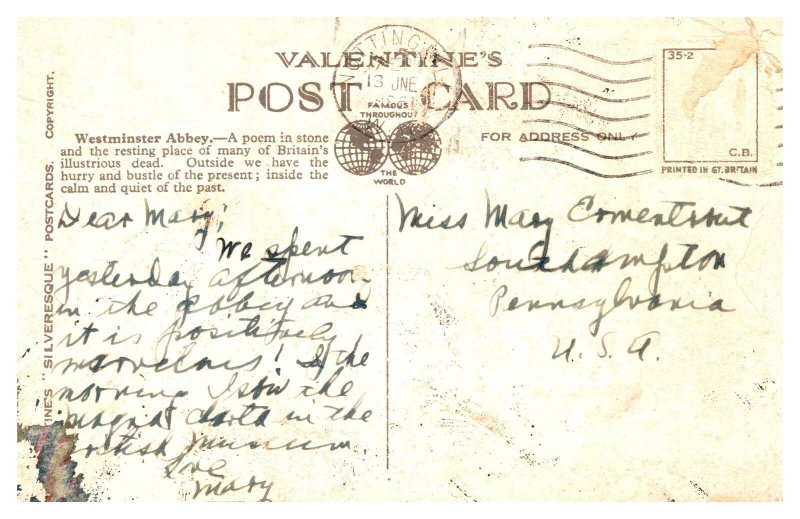 VALENTINE'S
POST CARD
FAMOUS
THROUGHOUT
THE
WORLD
NOTTING HILL
13 JNE
W.
FOR ADDRESS ONLY
35-2
C.B.
PRINTED IN GT. BRITAIN
Westminster Abbey.—A poem in stone
and the resting place of many of Britain's
illustrious dead. Outside we have the
hurry and bustle of the present; inside the
calm and quiet of the past.
TINE'S "SILVERESQUE" POSTCARDS. COPYRIGHT.
Dear Mary,
We spent
yesterday afternoon
in the abbey and
it is positively
marvelous! In the
morning I saw the
magna carta in the
british Museum.
Love
Mary
Miss Mary
Southampton
Pennsylvania
U. S. A.